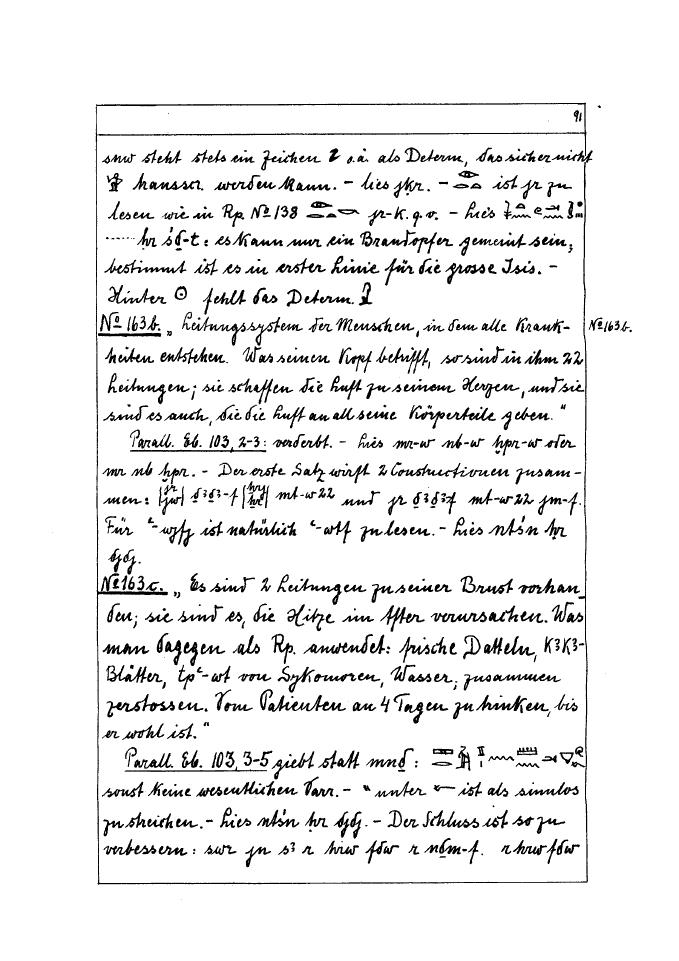 91
snw steht stets ein Zeichen o.ä. als Determ, das sicher nicht
𓀗 hansscr. werden kann. – lies jkr. – 𓁹𓂋𓏏 ist jr zu
lesen wie in Rp. No 138 jr-k. q.v. – lies
...... ḥr śḏ-t: es kann nur ein Brandopfer gemeint sein;
bestimmt ist es in erster Linie für die grosse Isis. –
Hinter ☉ fehlt das Determ.
No 163b. „Leitungssystem der Menschen, in dem alle Krank-
No 163b.
heiten entstehen. Was seinen Kopf betrifft, so sind in ihm 22
Leitungen; sie schaffen die Luft zu seinem Herzen, und sie
sind es auch, die die Luft an all seine Körperteile geben."
Parall. Eb. 103, 2-3: verderbt. – Lies mr-w nb-w ḫpr-w oder
mr nb ḫpr. – Der erste Satz wirft 2 Constructionen zusam-
men: |jr jw| ḏꜣḏꜣ-f |hry hr| mt-w 22 und jr ḏꜣḏꜣ-f mt-w 22 jm-f.
Für ꜥ-wjfj ist natürlich ꜥ-wtf zu lesen. – Lies ntśn ḥr
ḏjḏj.
No 163c. „Es sind 2 Leitungen zu seiner Brust vorhan-
den; sie sind es, die Hitze im After verursachen. Was
man dagegen als Rp. anwendet: frische Datteln, kꜣkꜣ-
Blätter, tpꜥ-wt von Sykomoren, Wasser; zusammen
zerstossen. Vom Patienten an 4 Tagen zu trinken, bis
er wohl ist."
Parall. Eb. 103, 3-5 giebt statt mnḏ:
sonst keine wesentlichen Varr. – unter ist als sinnlos
zu streichen. – Lies ntśn ḥr ḏjḏj. – Der Schluss ist so zu
verbessern: swr jn sꜣ r hrw fdw r nḏm-f. r hrw fdw